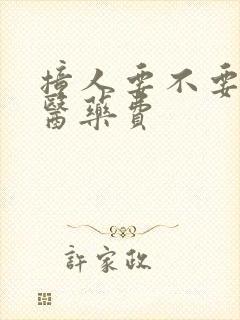 撞人要不要
醫藥費
許家政